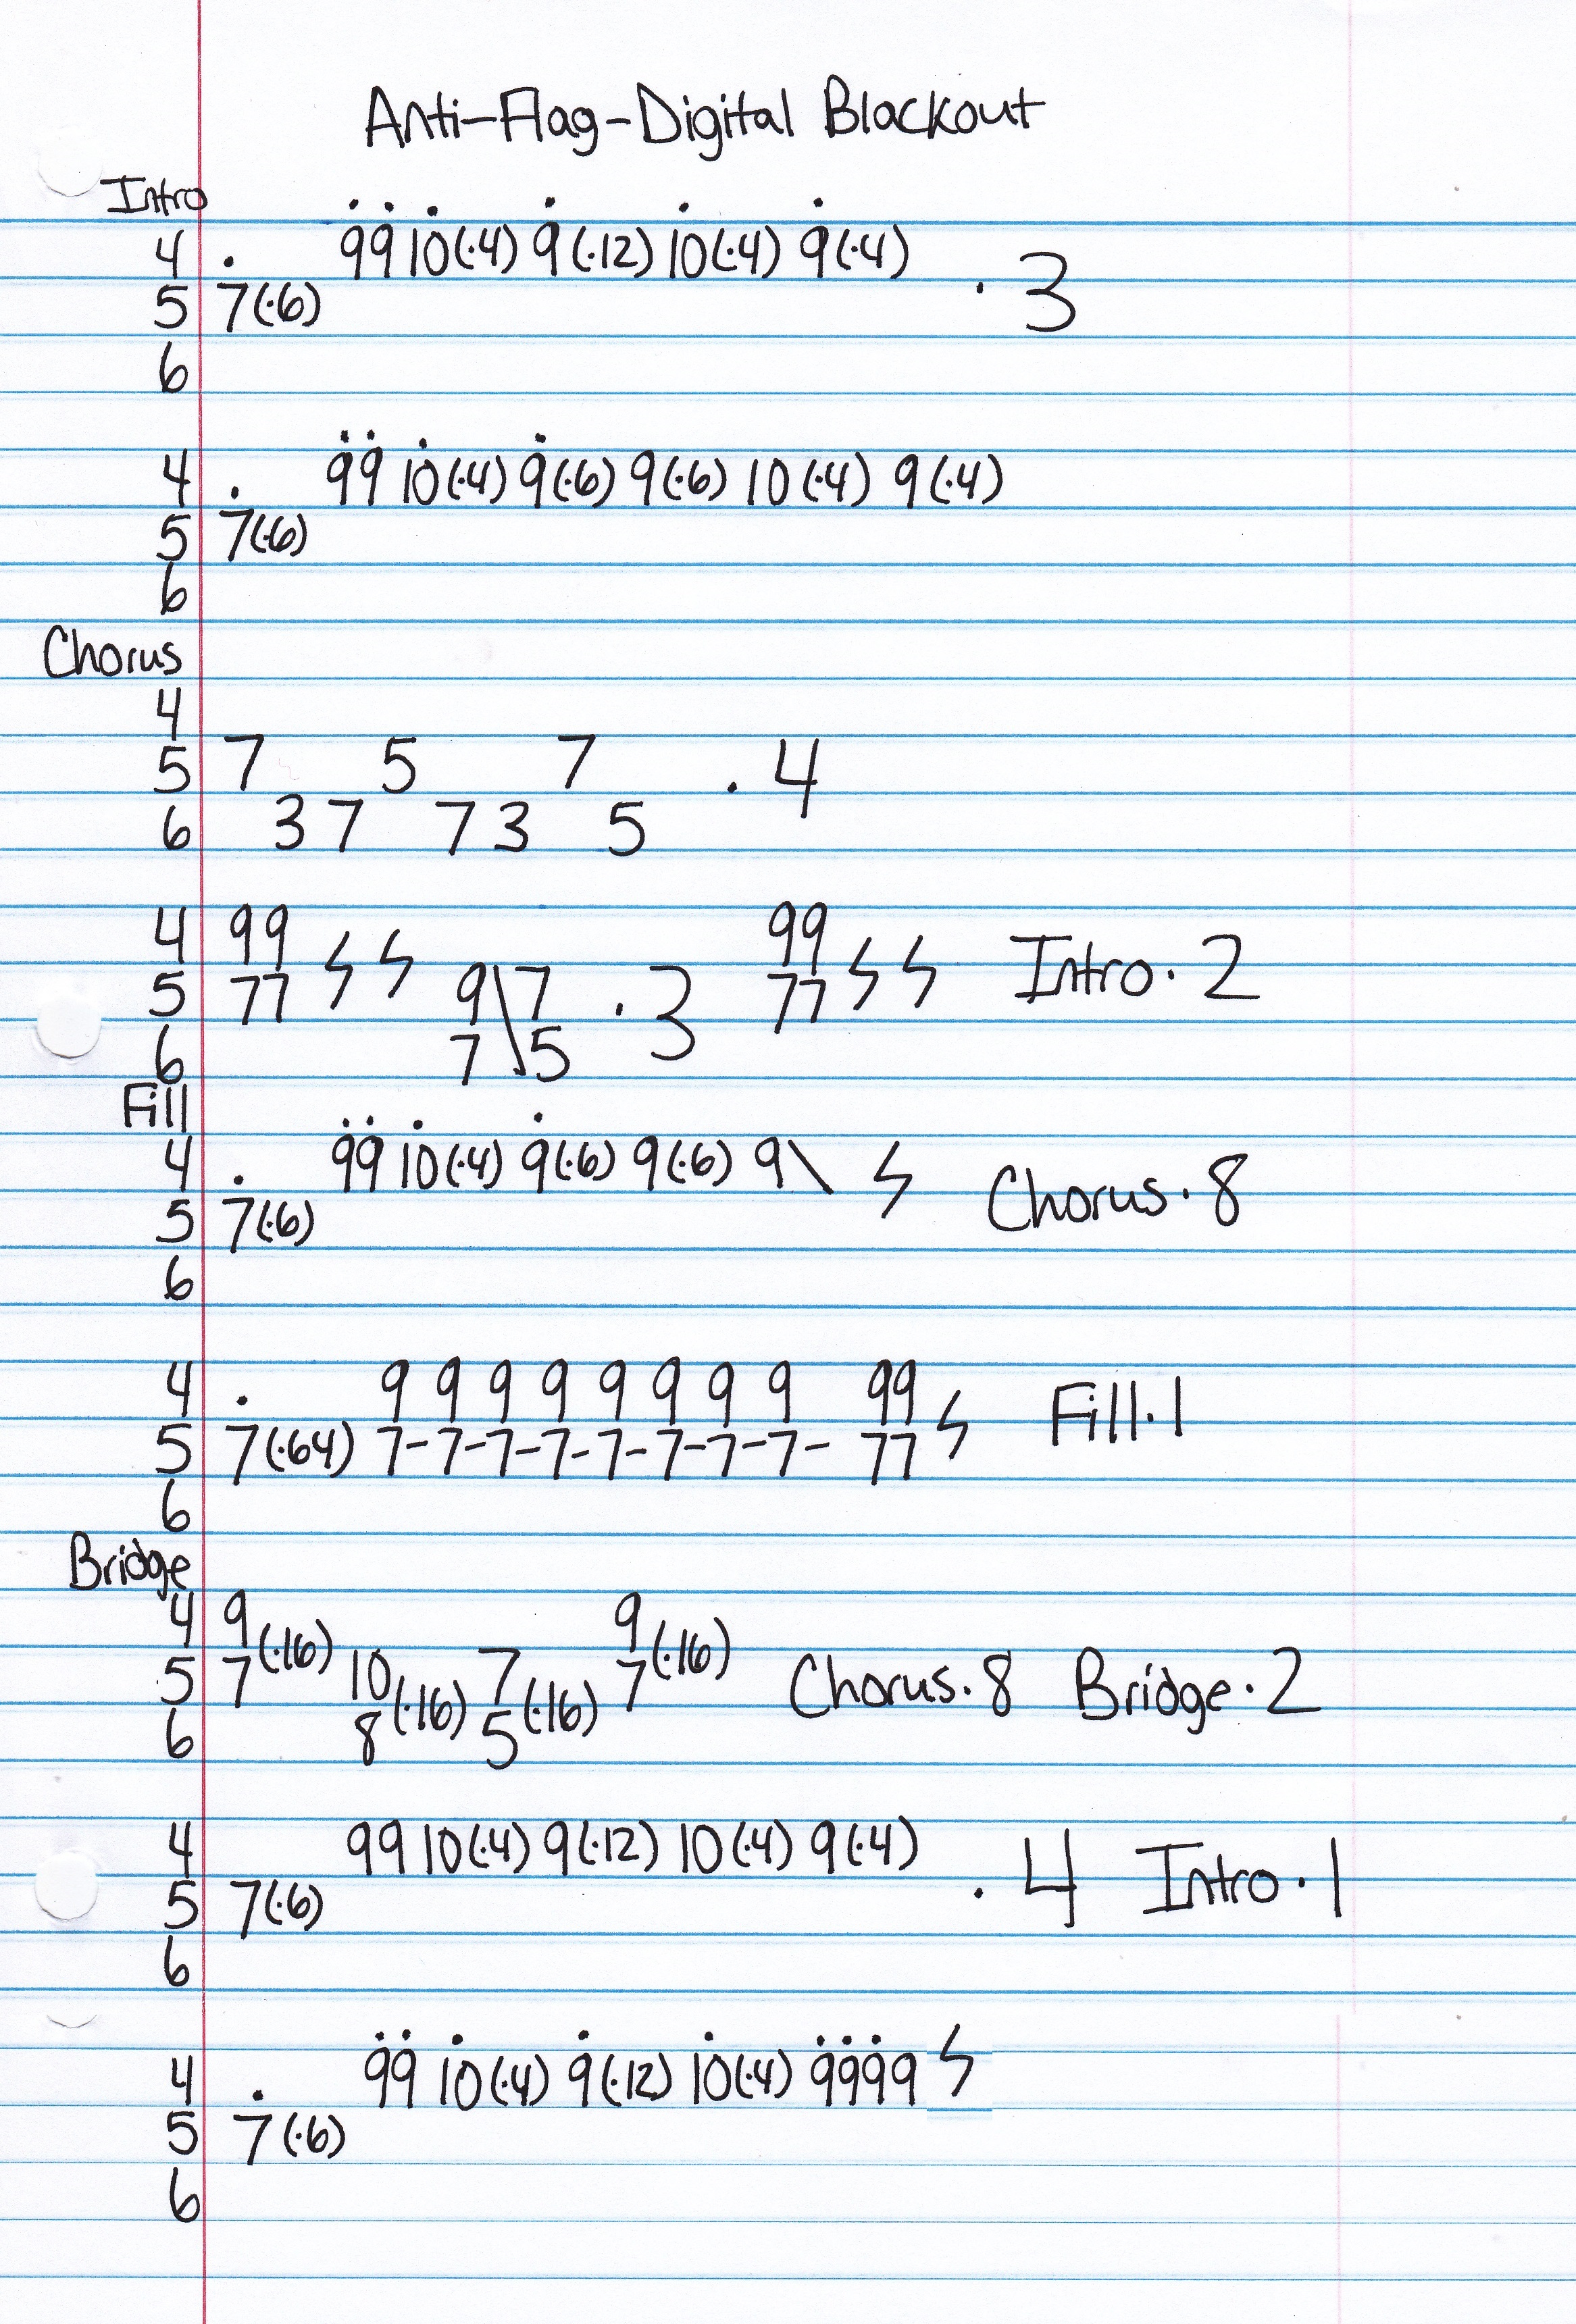 Anti-Flag-Digital Blackout
Intro
4 . 99 10(·4) 9(·12) 10(·4) 9(·4)
5 7(·6) · 3
6
4 . 99 10(·4) 9(·6) 9(·6) 10(·4) 9(·4)
5 7(·6)
6
Chorus
4
5 7 5 7 · 4
6 3 7 7 3 5
4 99 99
5 77 ϟ ϟ 9\7 · 3 77 ϟ ϟ Intro · 2
6 7 5
Fill
4 . 99 10(·4) 9(·6) 9(·6) 9\ ϟ Chorus · 8
5 7(·6)
6
4 . 9 9 9 9 9 9 9 9 99
5 7(·64) 7-7-7-7-7-7-7-7- 77 ϟ Fill · 1
6
Bridge
4 9 9
5 7(·16) 10 7 7(·16) Chorus · 8 Bridge · 2
6 8(·16) 5(·16)
4 99 10(·4) 9(·12) 10(·4) 9(·4)
5 7(·6) · 4 Intro · 1
6
4 . 99 10(·4) 9(·12) 10(·4) 9999 ϟ
5 7(·6)
6